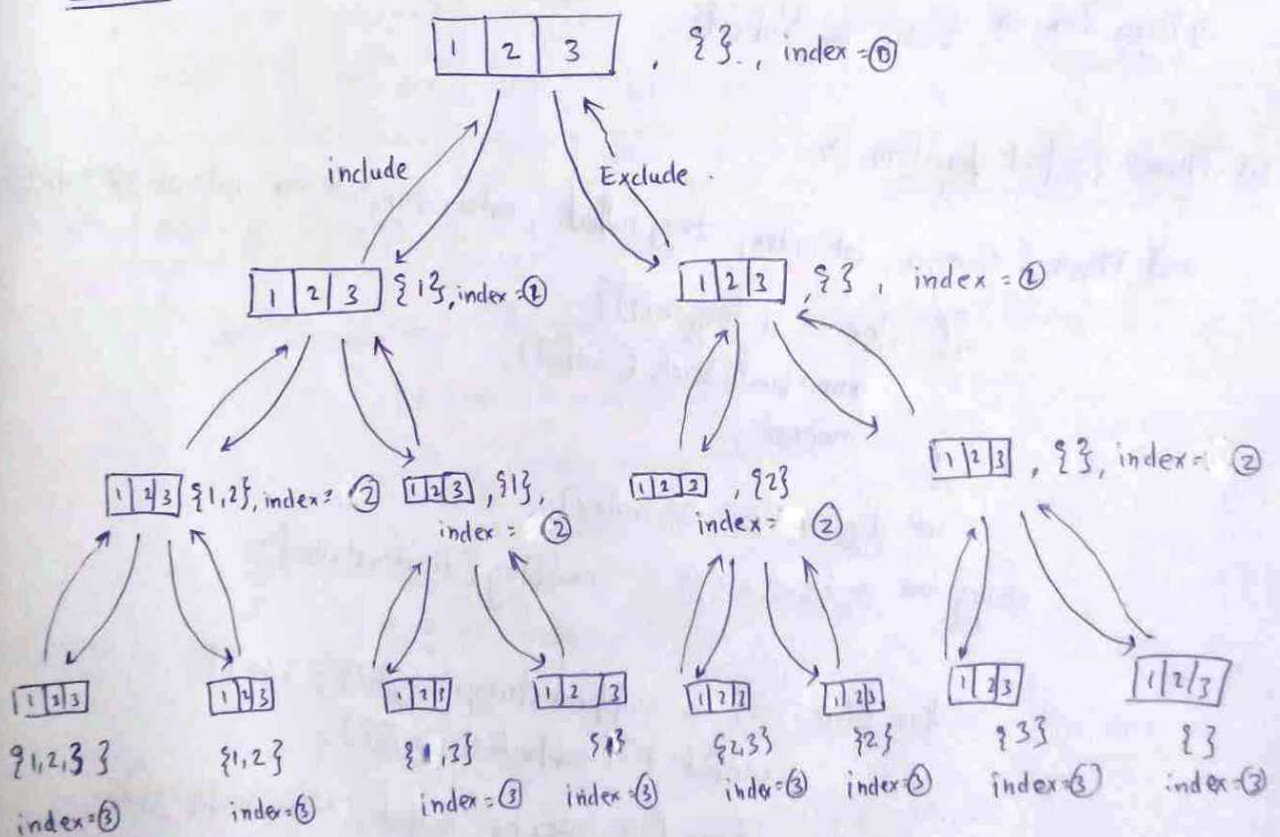 1 2 3 , { } , index = 0
include
Exclude .
1 2 3 {1}, index = 1
1 2 3 , { } , index = 1
1 2 3 {1,2}, index = 2
1 2 3 , {1},
index = 2
1 2 3 , {2}
index = 2
1 2 3 , { }, index = 2
1 2 3
{1,2,3}
index = 3
1 2 3
{1,2}
index = 3
1 2 3
{1,3}
index = 3
1 2 3
{1}
index = 3
1 2 3
{2,3}
index = 3
1 2 3
{2}
index = 3
1 2 3
{3}
index = 3
1 2 3
{ }
index = 3